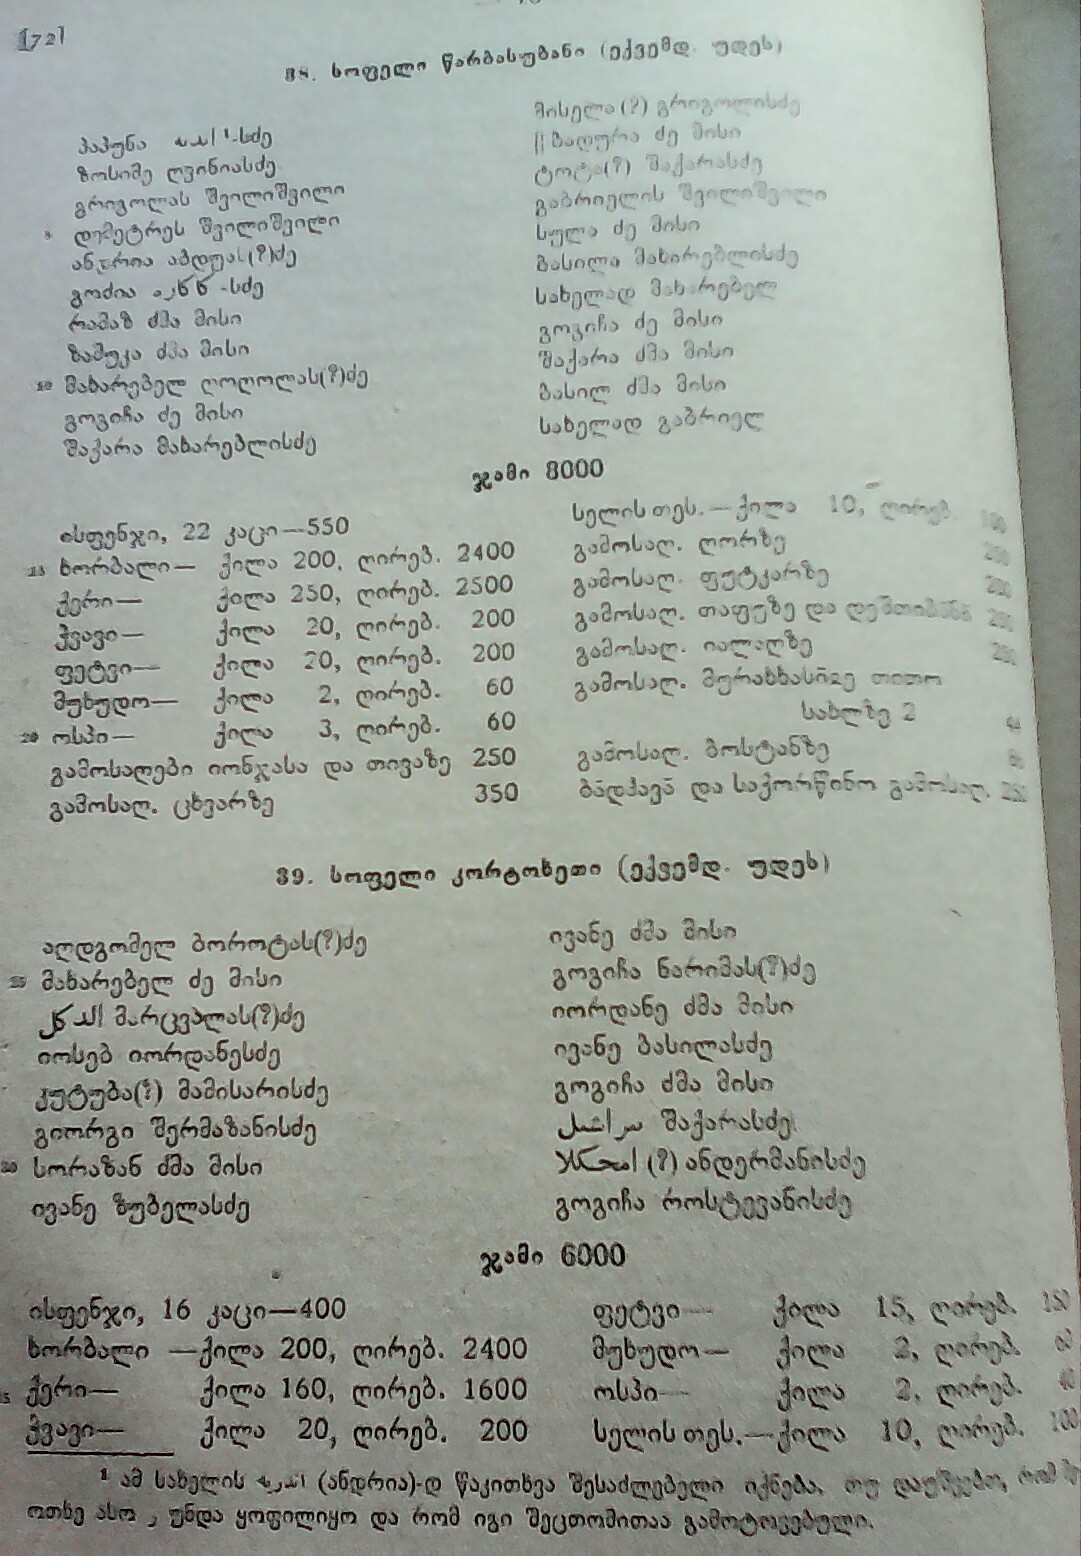 [72]
38. სოფელი წარბასუბანი (ექვემდ. უდეს)
პაპუნა ¹-სძე
ზოსიმე ღვინიასძე
გრიგოლას შვილიშვილი
დემეტრეს შვილიშვილი
ანდრია აბდუას(?)ძე
გოძია -სძე
რამაზ ძმა მისი
ზამუკა ძმა მისი
10 მახარებელ ღოღოლას(?)ძე
გოგიჩა ძე მისი
შაქარა მახარებლისძე
მისელა(?) გრიგოლისძე
|| ბადურა ძე მისი
ტოტა(?) შაქარასძე
გაბრიელის შვილიშვილი
სულა ძე მისი
ბასილი მახარებლისძე
სახელად მახარებელ
გოგიჩა ძე მისი
შაქარა ძმა მისი
ბასილ ძმა მისი
სახელად გაბრიელ
ჯამი 8000
ისფენჯი, 22 კაცი—550
15 ხორბალი— ქილა 200, ღირებ. 2400
ქერი— ქილა 250, ღირებ. 2500
ჭვავი— ქილა 20, ღირებ. 200
ფეტვი— ქილა 20, ღირებ. 200
მუხუდო— ქილა 2, ღირებ. 60
20 ოსპი— ქილა 3, ღირებ. 60
გამოსაღები იონჯასა და თივაზე 250
გამოსაღ. ცხვარზე 350
სელის თეს.—ქილა 10, ღირებ. 100
გამოსაღ. ღორზე
გამოსაღ. ფუტკარზე
გამოსაღ. თაფუზე და დეშთიბანზე
გამოსაღ. იალაღზე
გამოსაღ. მურახხასიჲე თითო
სახლზე 2
გამოსაღ. ბოსტანზე
ბადჰავა და საქორწინო გამოსაღ. 250
39. სოფელი კორტოხეთი (ექვემდ. უდეს)
აღდგომელ ბოროტას(?)ძე
25 მახარებელ ძე მისი
მარცვალას(?)ძე
იოსებ იორდანესძე
კუტუბა(?) მამისარისძე
გიორგი შერმაზანისძე
30 სორაზან ძმა მისი
ივანე ზუბელასძე
ივანე ძმა მისი
გოგიჩა ნარიმას(?)ძე
იორდანე ძმა მისი
ივანე ბასილასძე
გოგიჩა ძმა მისი
شاكارასძე
(?) ანდერმანისძე
გოგიჩა როსტევანისძე
ჯამი 6000
ისფენჯი, 16 კაცი—400
ხორბალი —ქილა 200, ღირებ. 2400
ქერი— ქილა 160, ღირებ. 1600
ჭვავი— ქილა 20, ღირებ. 200
ფეტვი— ქილა 15, ღირებ. 150
მუხუდო— ქილა 2, ღირებ. 60
ოსპი— ქილა 2, ღირებ. 40
სელის თეს.—ქილა 10, ღირებ. 100
¹ ამ სახელის (ანდრია)-დ წაკითხვა შესაძლებელი იქნება, თუ დაუშვებთ, რომ
ოთხე ასო و უნდა ყოფილიყო და რომ იგი შეცთომითაა გამოტოვებული.